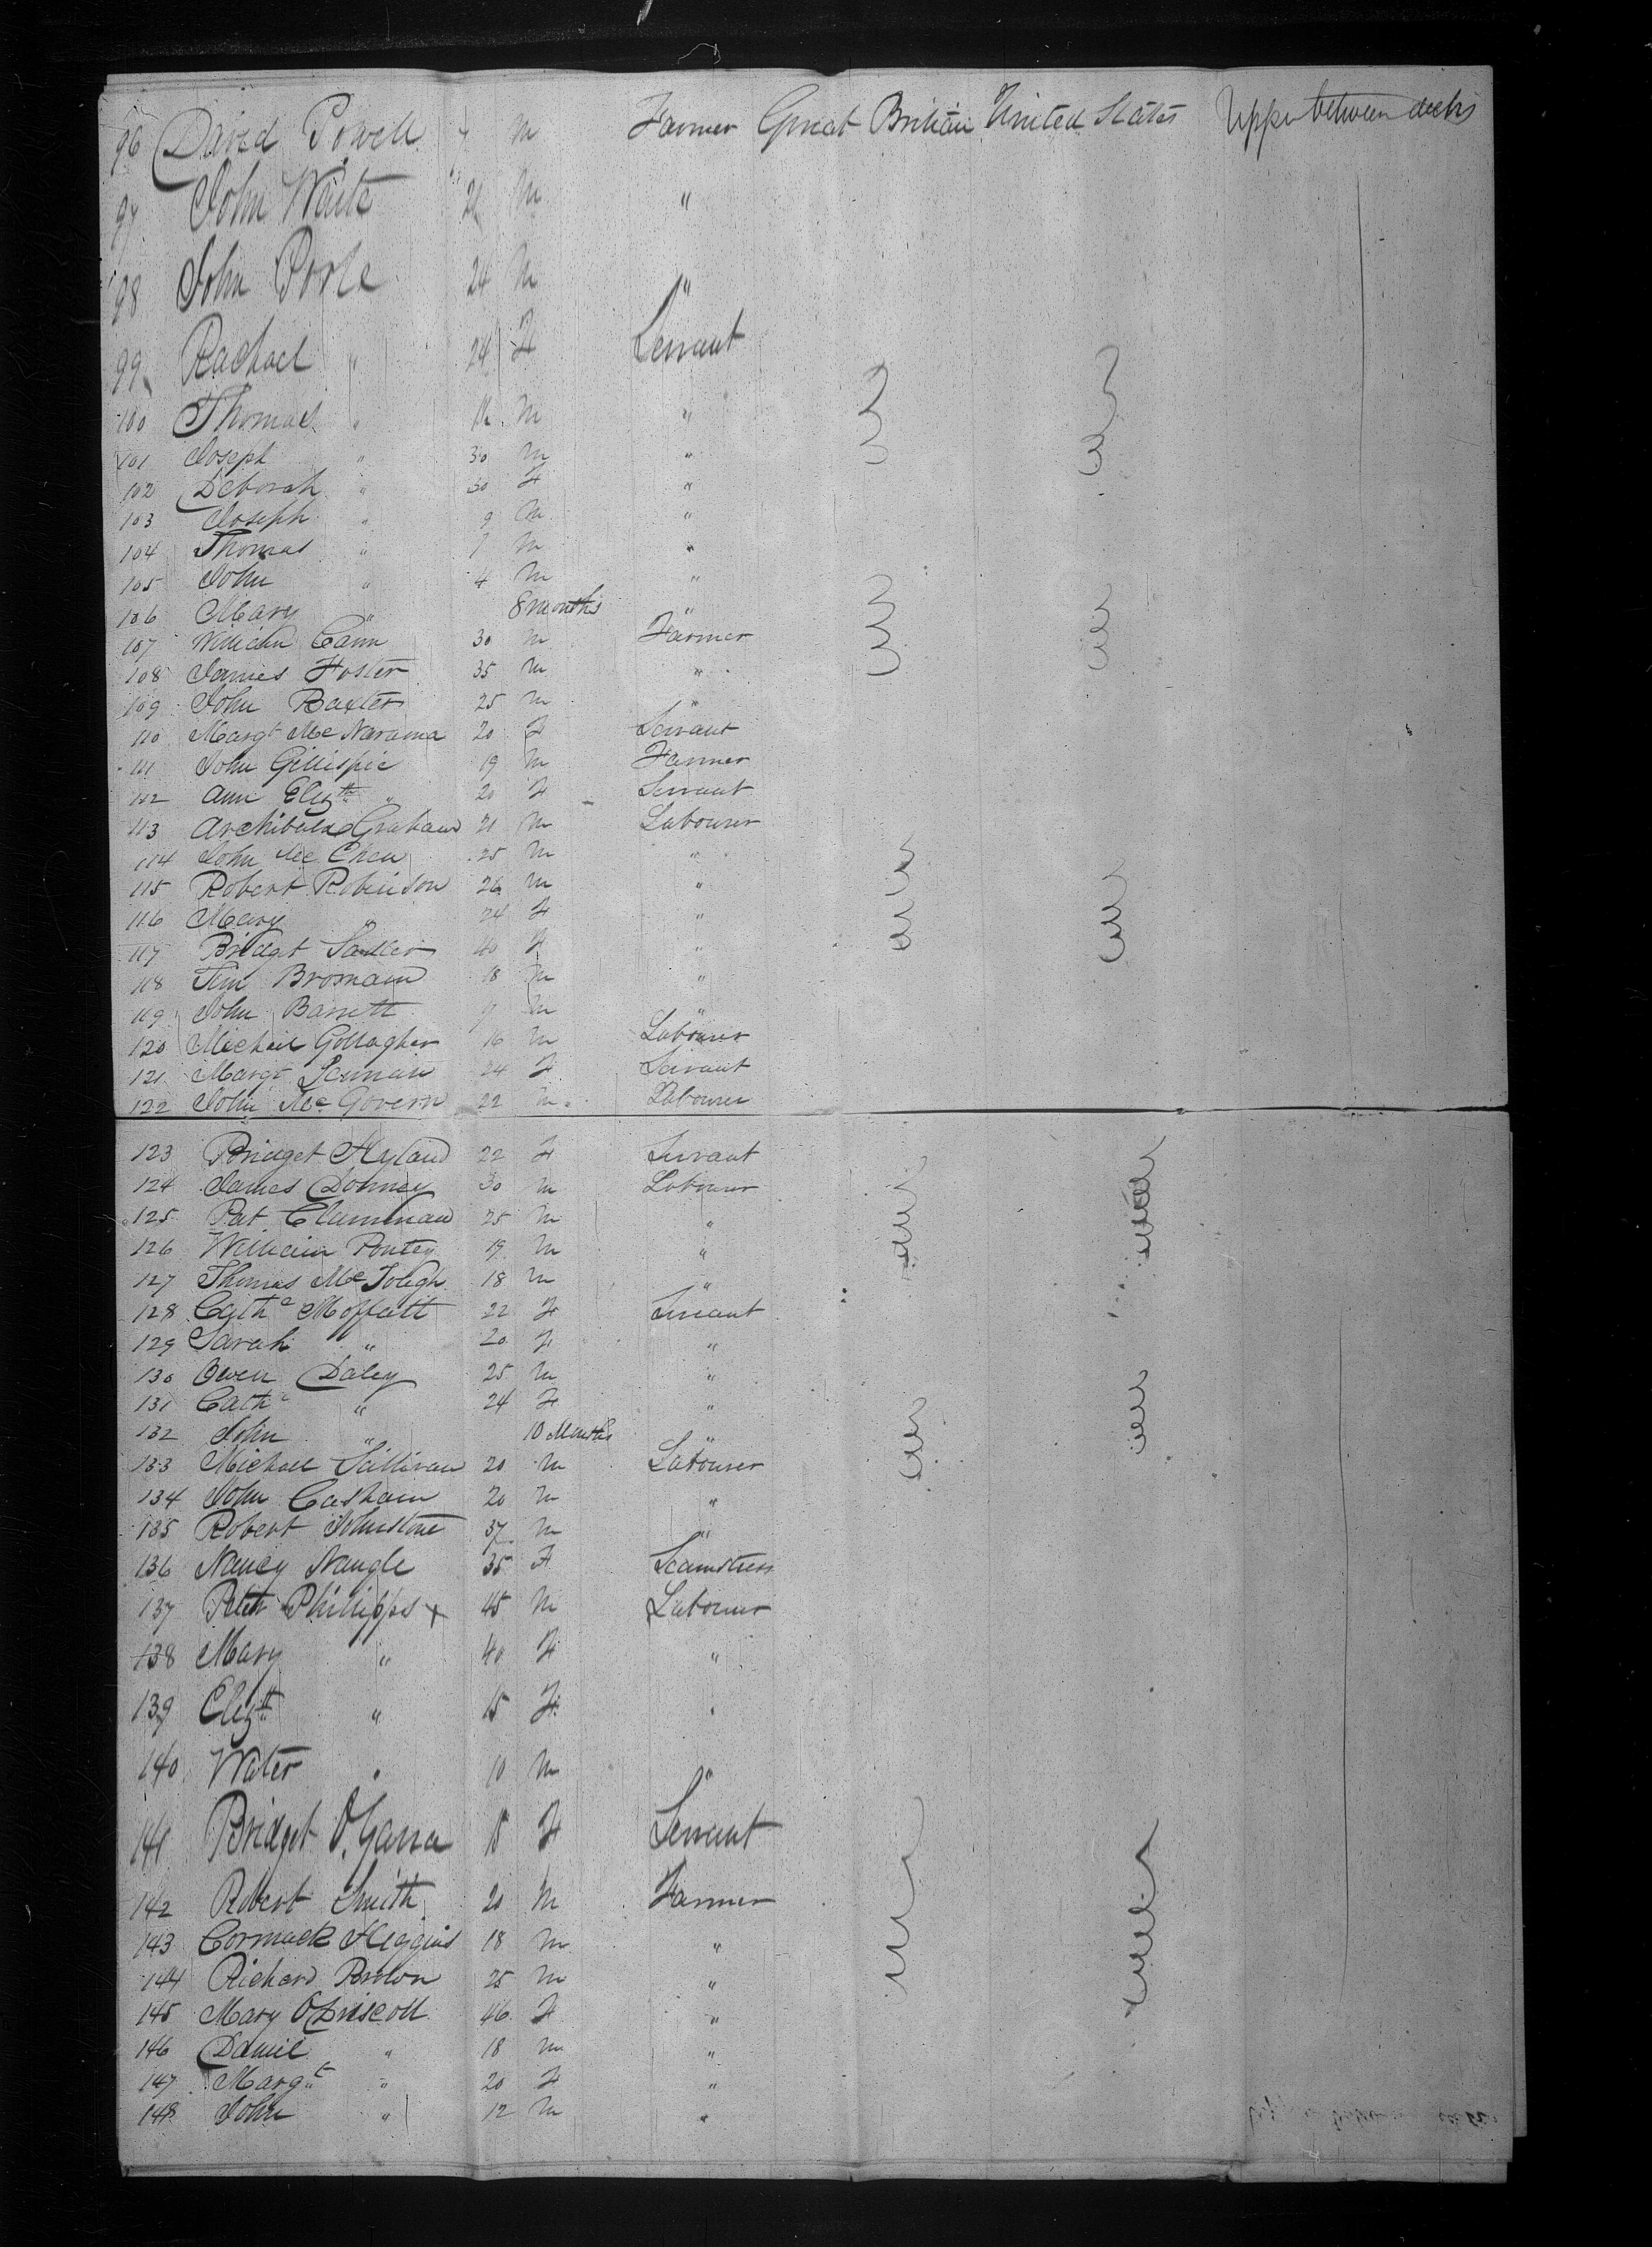 96 David Powell M Farmer Great Britain United States Upper between decks
97 John Waite 21 M "
98 John Poole 24 M "
99 Rachael " 24 F Servant
100 Thomas " M "
101 Joseph " 30 M "
102 Deborah " 30 F "
103 Joseph " 9 M "
104 Thomas " 7 M "
105 John " 4 M "
106 Mary " 8 months "
107 William Cann 30 M Farmer
108 James Foster 35 M "
109 John Baxter 25 M "
110 Margt Mc Narama 20 F Servant
111 John Gillispie 19 M Farmer
112 Ann Elizth " 20 F Servant
113 Archibald Graham 21 M Labourer
114 John Mc 25 M "
115 Robert Robinson 26 M "
116 Mary " 24 F "
117 Bridget Sadler 40 F "
118 Tim Bromain 18 M "
119 John Barrett 9 M "
120 Michael Gollagher 16 M Labourer
121 Margt 24 F Servant
122 John Mc Govern 22 M Labourer
123 Bridget Hyland 22 F Servant
124 James Dohney 30 M Labourer
125 Pat 25 M "
126 William Pontey 19 M "
127 Thomas Mc 18 M "
128 Cathe Moffatt 22 F Servant
129 Sarah " 20 F "
130 Owen Daley 25 M "
131 Cathe " 24 F "
132 John " 10 Months "
133 Michael Sullivan 20 M Labourer
134 John Casham 20 M "
135 Robert Johnstone 37 M "
136 Nancy Nangle 35 F Seamstress
137 Peter Phillipps + 45 M Labourer
138 Mary " 40 F "
139 Elizth " 15 F "
140 Water " 10 M "
141 Bridget O'Garra 18 F Servant
142 Robert Smith 20 M Farmer
143 Cormack Higgins 18 M "
144 Richard Brown 25 M "
145 Mary O'Driscoll 46 F "
146 Daniel " 18 M "
147 Margt " 20 F "
148 John " 12 M "